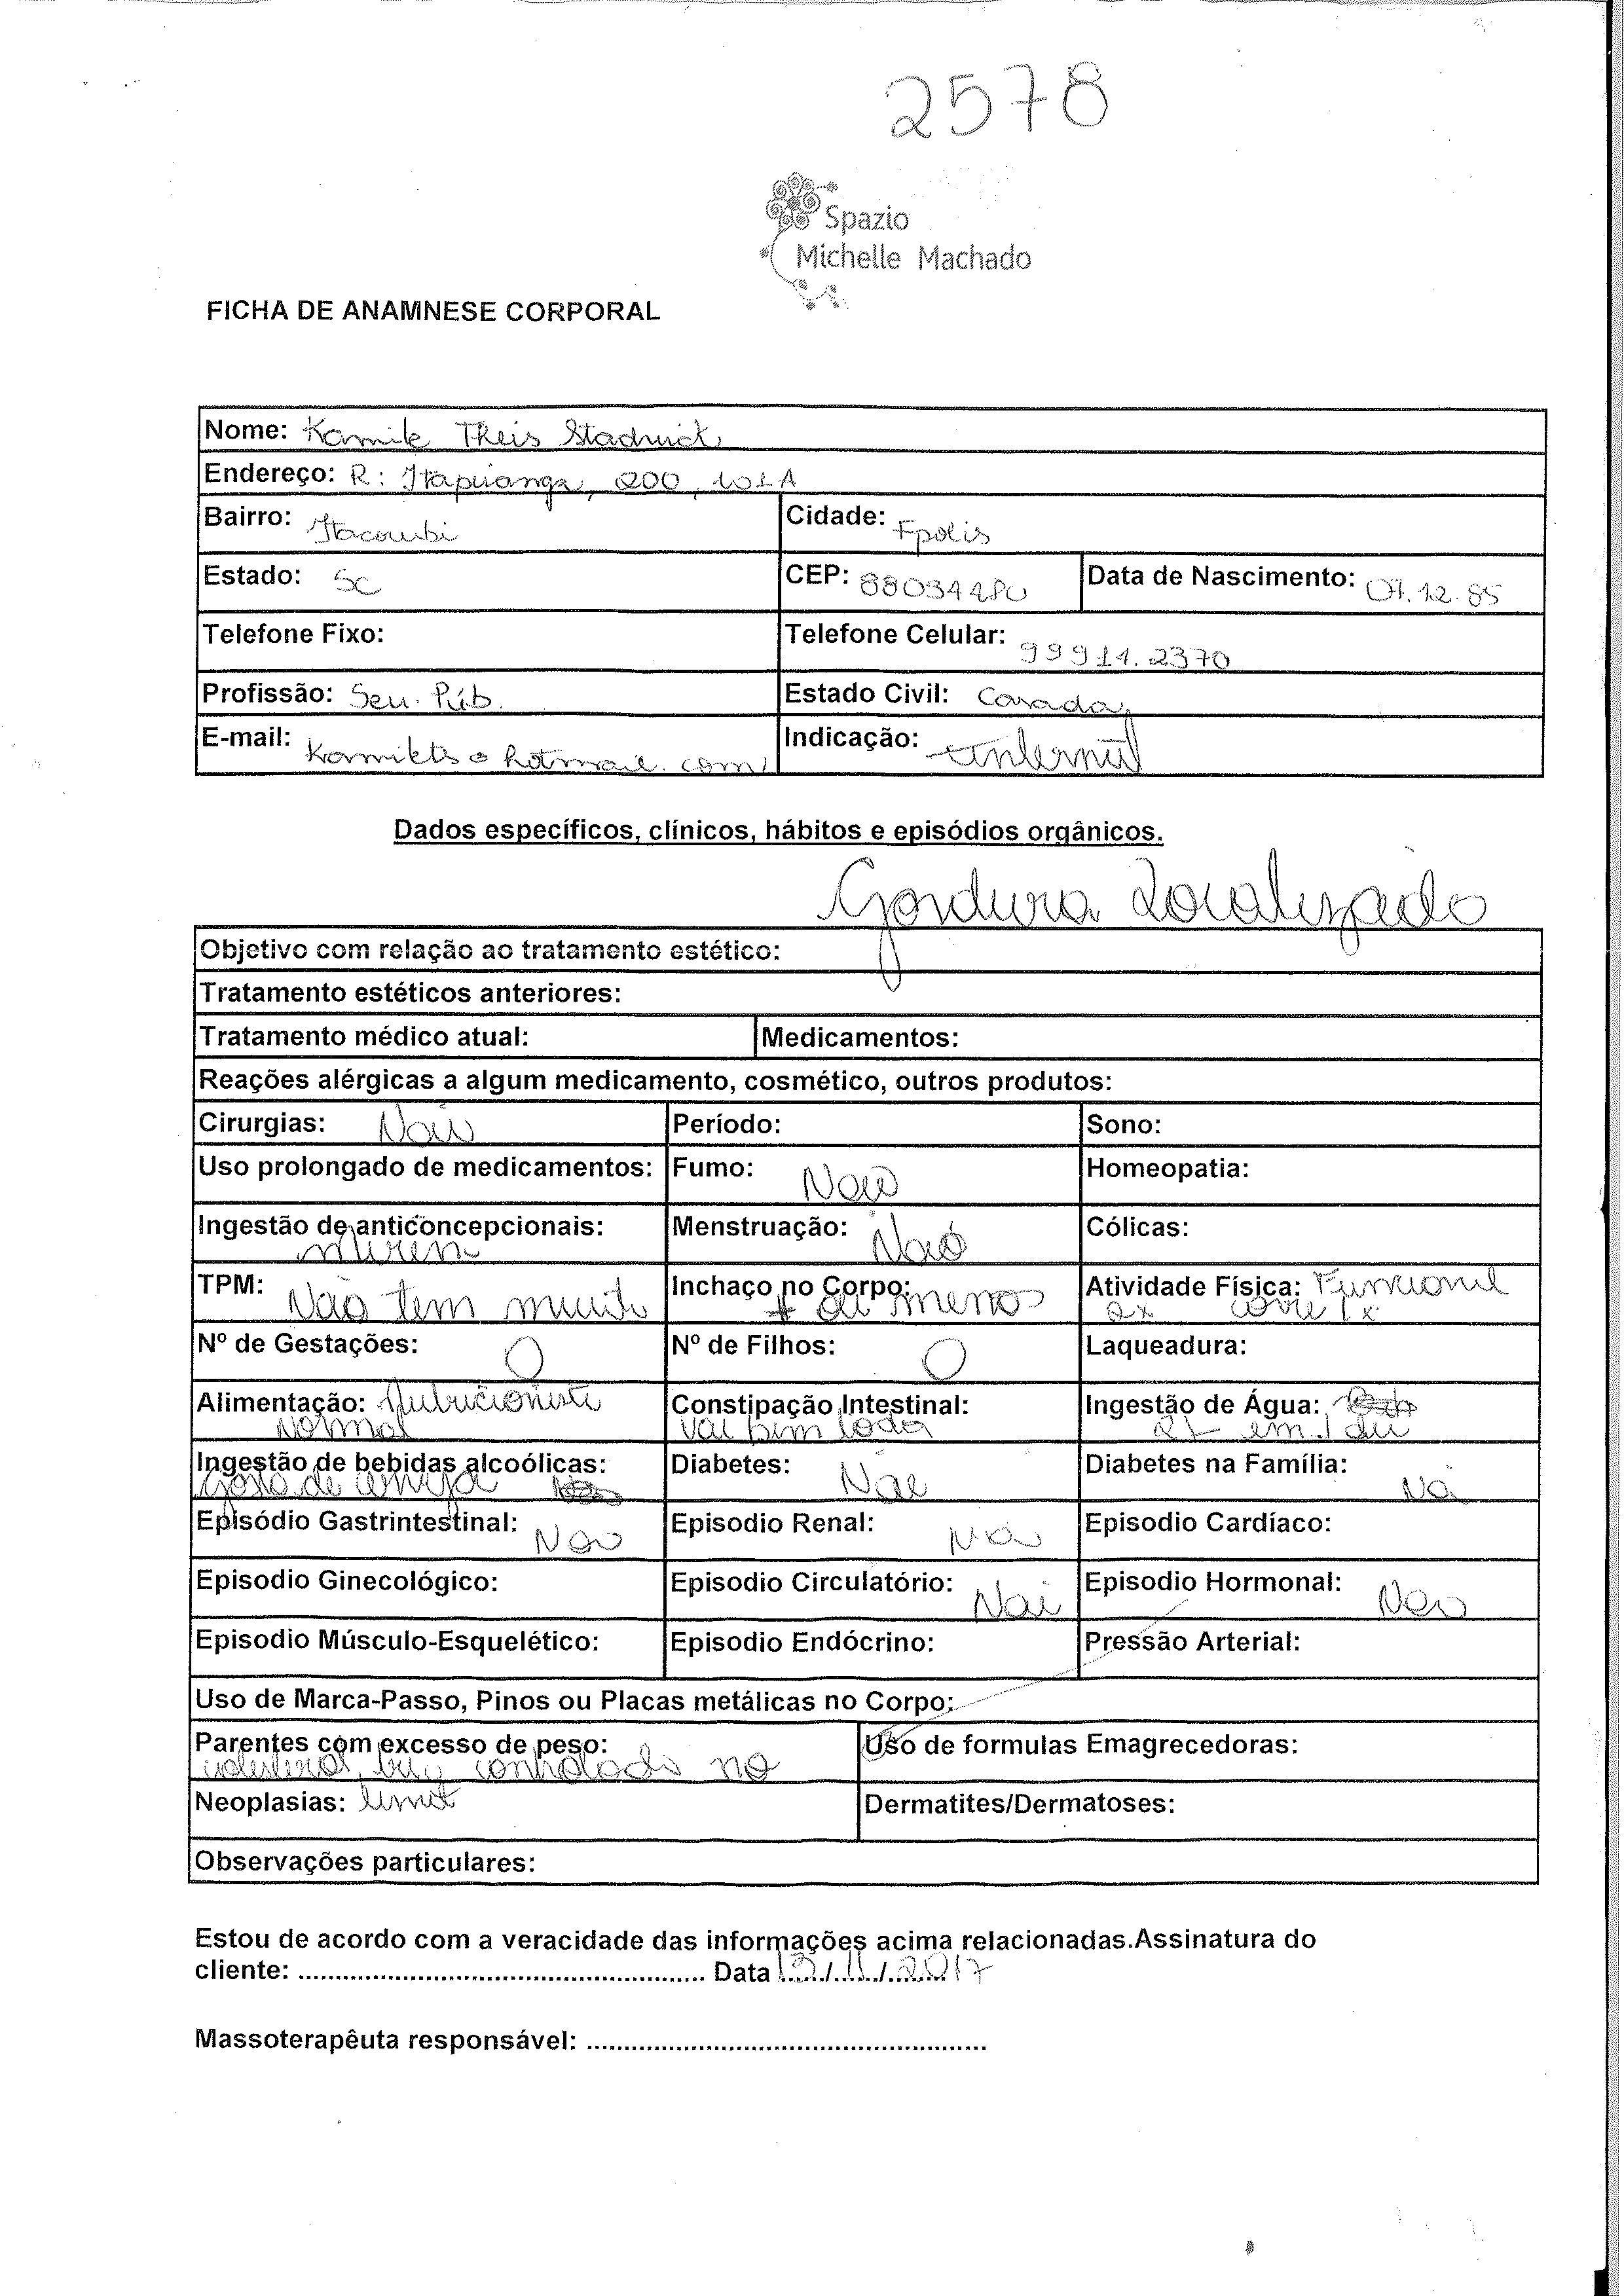 2578
Spazio
Michelle Machado
FICHA DE ANAMNESE CORPORAL
Nome: Kamile Theis Stadnick
Endereço: R: Itapiranga, 200, 101A
Bairro: Itacorubi Cidade: Fpolis
Estado: SC CEP: 88034480 Data de Nascimento: 07.12.85
Telefone Fixo: Telefone Celular: 99911.2370
Profissão: Serv. Púb. Estado Civil: Casada
E-mail: kamilets@hotmail.com Indicação: Internet
Dados específicos, clínicos, hábitos e episódios orgânicos.
Gordura Localizada
Objetivo com relação ao tratamento estético:
Tratamento estéticos anteriores:
Tratamento médico atual: Medicamentos:
Reações alérgicas a algum medicamento, cosmético, outros produtos:
Cirurgias: Não Período: Sono:
Uso prolongado de medicamentos: Fumo: Não Homeopatia:
Ingestão de anticoncepcionais: Mirena Menstruação: Não Cólicas:
TPM: Não tem muito Inchaço no Corpo: + ou menos Atividade Física: Funcional
2x corre 1x
Nº de Gestações: 0 Nº de Filhos: 0 Laqueadura:
Alimentação: Nutricionista Constipação Intestinal: Ingestão de Água:
Normal Vai bem 2L em 1 dia
Ingestão de bebidas alcoólicas: Diabetes: Não Diabetes na Família: Nã
Gosta de cerveja
Episódio Gastrintestinal: Não Episodio Renal: Não Episodio Cardíaco:
Episodio Ginecológico: Episodio Circulatório: Não Episodio Hormonal: Não
Episodio Músculo-Esquelético: Episodio Endócrino: Pressão Arterial:
Uso de Marca-Passo, Pinos ou Placas metálicas no Corpo:
Parentes com excesso de peso: Uso de formulas Emagrecedoras:
colesterol bem controlado no
Neoplasias: limit Dermatites/Dermatoses:
Observações particulares:
Estou de acordo com a veracidade das informações acima relacionadas.Assinatura do
cliente: ........................................................ Data 13/11/2017
Massoterapêuta responsável: ......................................................